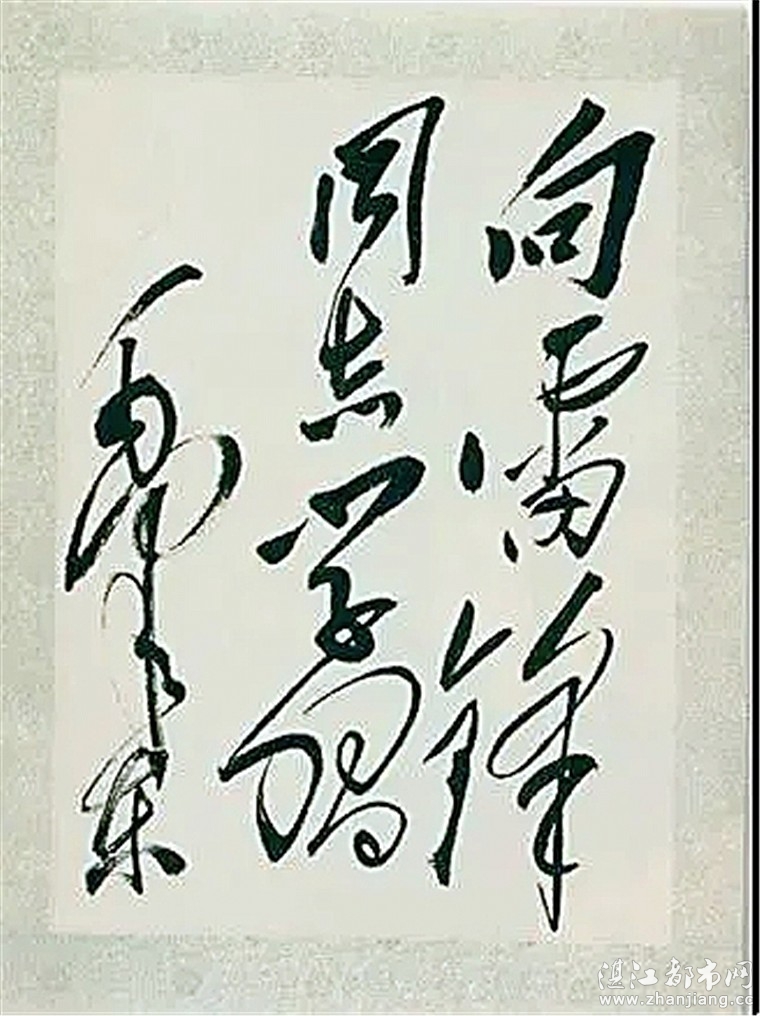 向雷锋
同志学习
毛泽东
湛江都市网
www.zhanjiang.cc